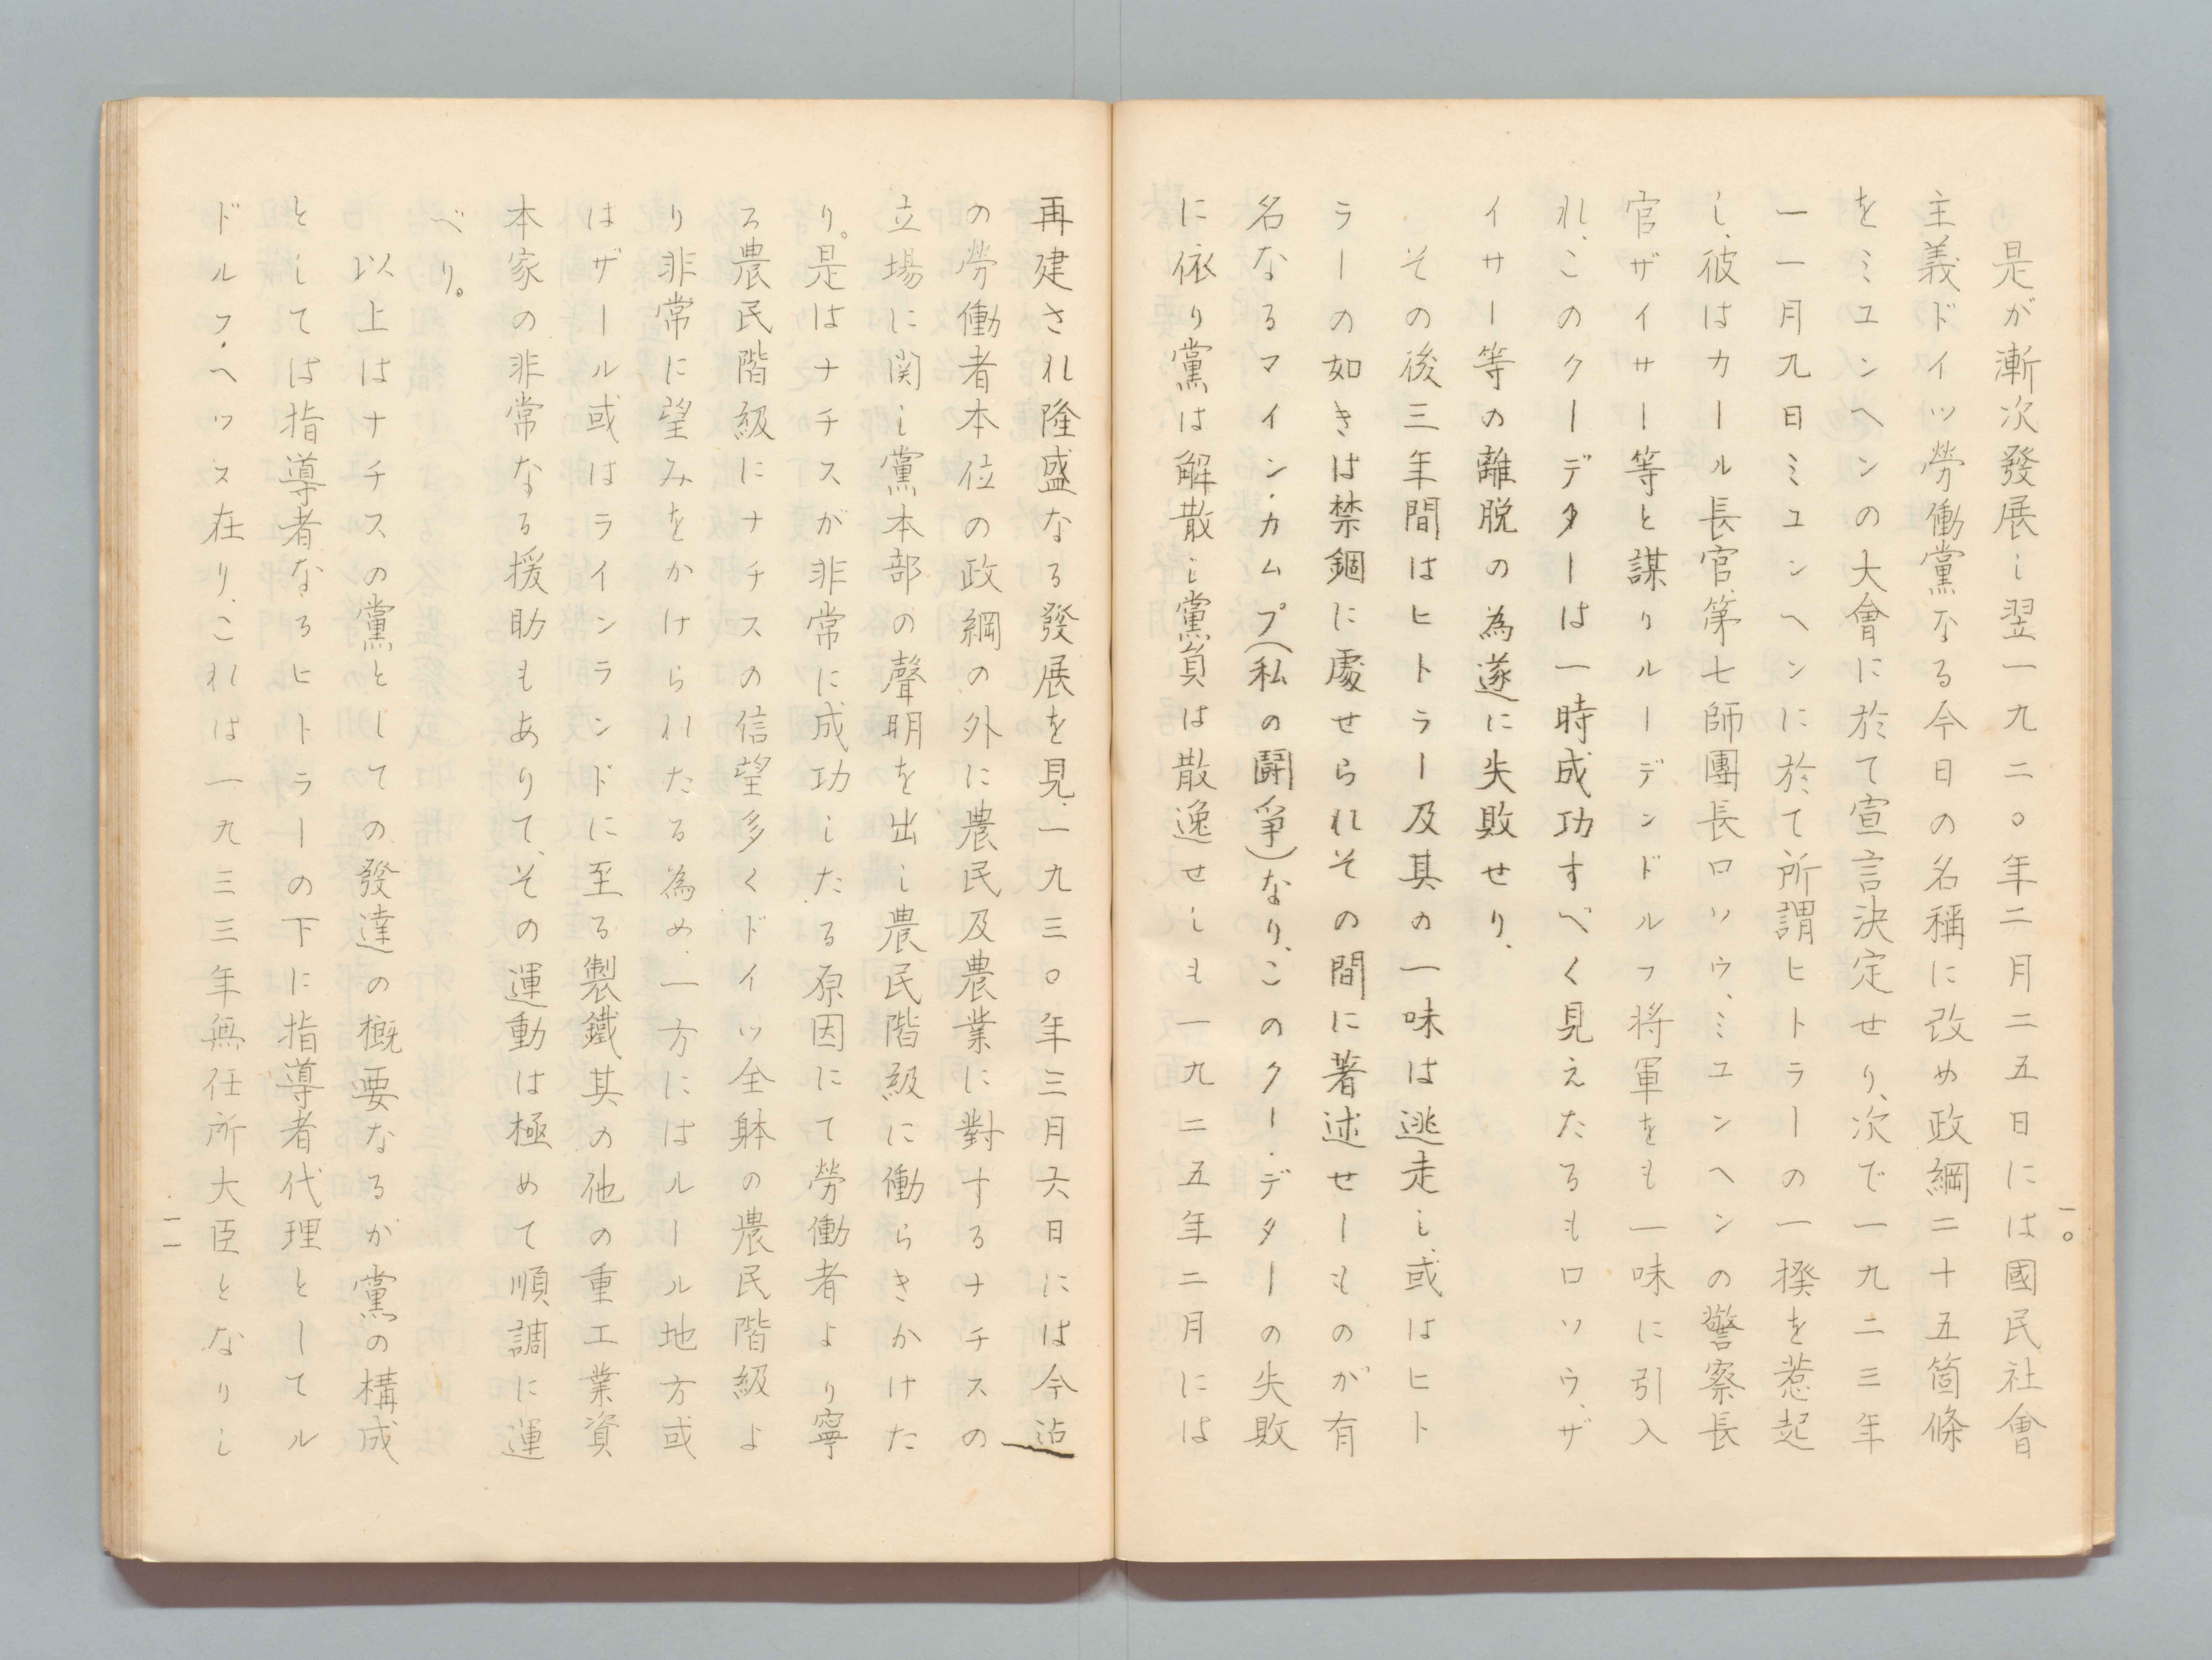 一〇
是が漸次發展し翌一九二〇年二月二五日には國民社會
主義ドイツ勞働黨なる今日の名稱に改め政綱二十五箇條
をミユンヘンの大會に於て宣言決定せり、次で一九二三年
一一月九日ミユンヘンに於て所謂ヒトラーの一揆を惹起
し、彼はカール長官、第七師團長ロソウ、ミユンヘンの警察長
官ザイサー等と謀りルーデンドルフ将軍をも一味に引入
れ、このクーデターは一時成功すべく見えたるもロソウ、ザ
イサー等の離脱の為遂に失敗せり、
その後三年間はヒトラー及其の一味は逃走し、或はヒト
ラーの如きは禁錮に處せられその間に著述せしものが有
名なるマイン・カムプ(私の鬪爭)なり、このクー・デターの失敗
に依り黨は解散し黨員は散逸せしも一九二五年二月には
再建され隆盛なる發展を見、一九三〇年三月六日には今迠
の勞働者本位の政綱の外に農民及農業に對するナチスの
立場に関し黨本部の聲明を出し農民階級に働らきかけた
り。是はナチスが非常に成功したる原因にて勞働者より寧
ろ農民階級にナチスの信望多くドイツ全躰の農民階級よ
り非常に望みをかけられたる為め、一方にはルール地方或
はザール或はラインランドに至る製鐵其の他の重工業資
本家の非常なる援助もありて、その運動は極めて順調に運
べり。
以上はナチスの黨としての發達の概要なるが黨の構成
としては指導者なるヒトラーの下に指導者代理としてル
ドルフ・ヘツス在り、これは一九三三年無任所大臣となりし
一一